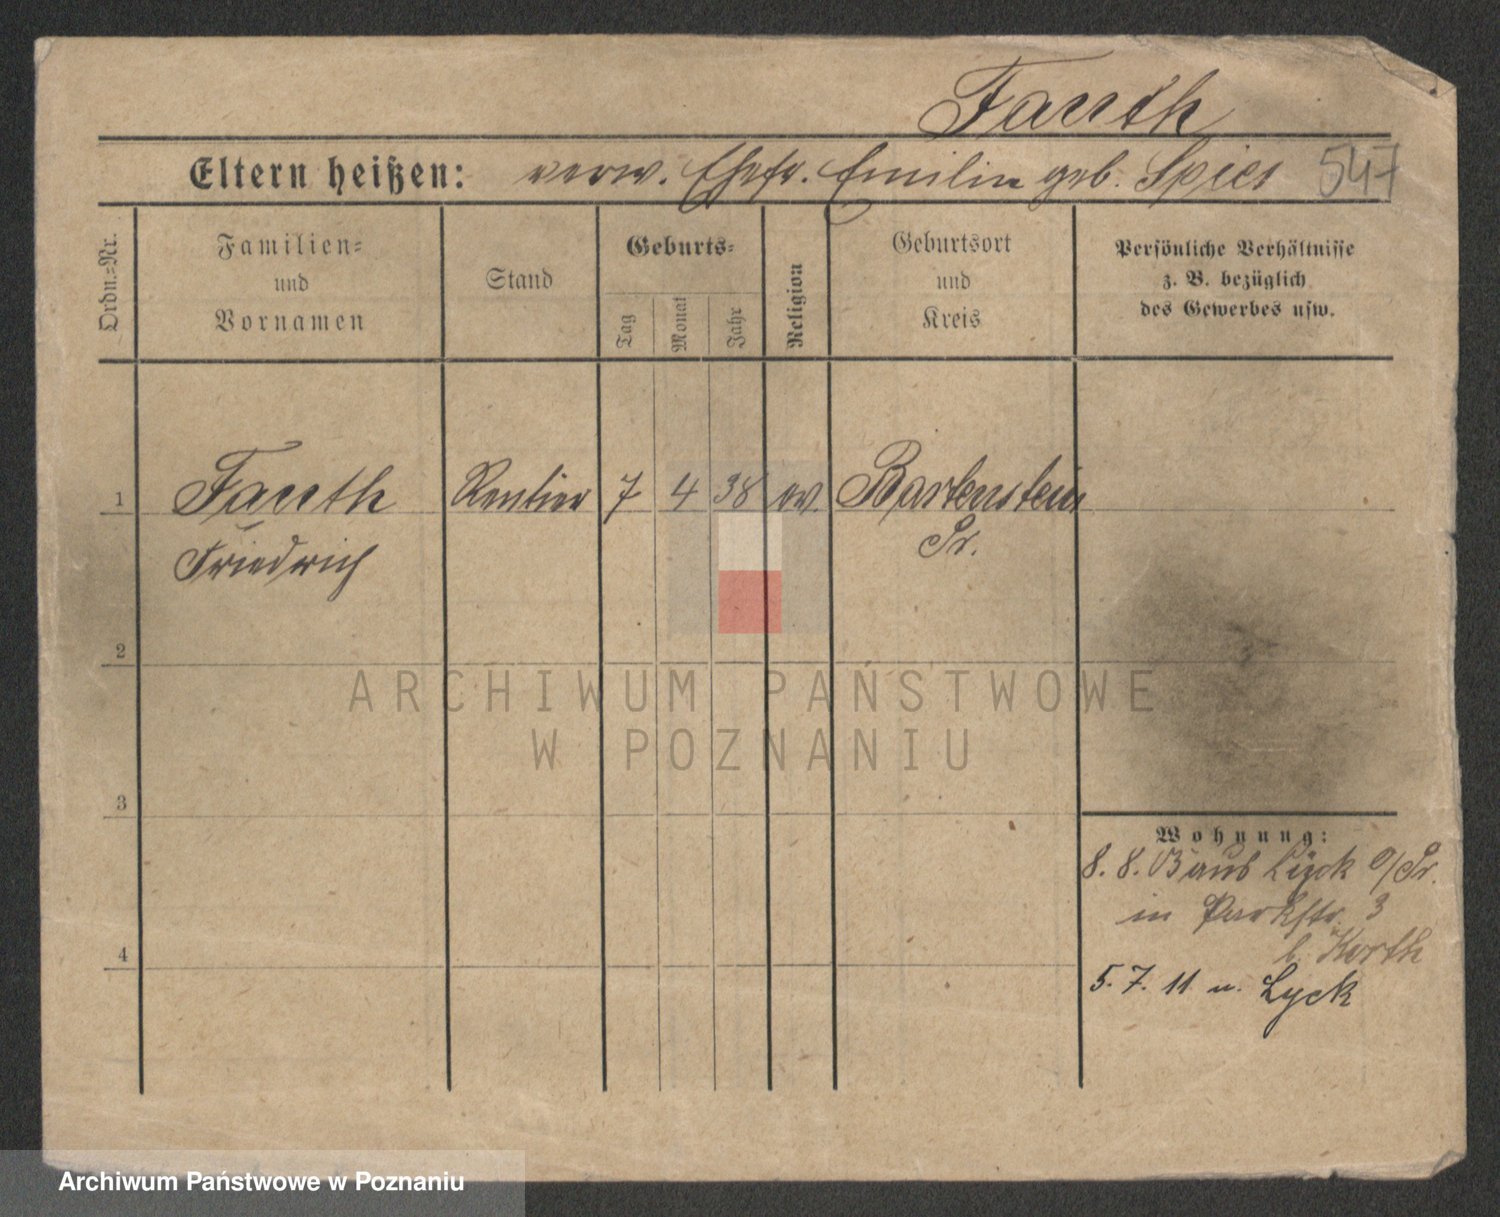 Fauth
Eltern heißen: verw. Ehefr. Emilie geb. Spies 547
Ordn.=Nr.
Familien=
und
Vornamen
Stand
Geburts=
Tag
Monat
Jahr
Religion
Geburtsort
und
Kreis
Persönliche Verhältnisse
z. B. bezüglich
des Gewerbes usw.
1 Fauth Rentier 7 4 38 ev. Bartenstein
Friedrich Pr.
2
ARCHIWUM PAŃSTWOWE
W POZNANIU
3
Wohnung:
8. 8. 03 aus Lyck O/Pr.
in Parkstr. 3
b. Korth
4
5. 7. 11 n. Lyck
Archiwum Państwowe w Poznaniu